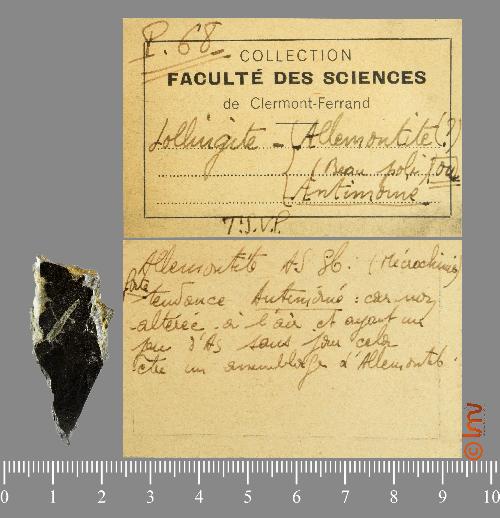 P. 68
COLLECTION
FACULTÉ DES SCIENCES
de Clermont-Ferrand
Lollingite - (Allemontite (?)
(Beau poli) ou
Antimoine
T.S.V.P.
Allemontite As Sb. (Microchimie)
forte
tendance Antimoine : car non
altérée à l'air et ayant un
peu d'As sans pour cela
être un assemblage d'Allemontite.
© lmv
0 1 2 3 4 5 6 7 8 9 10